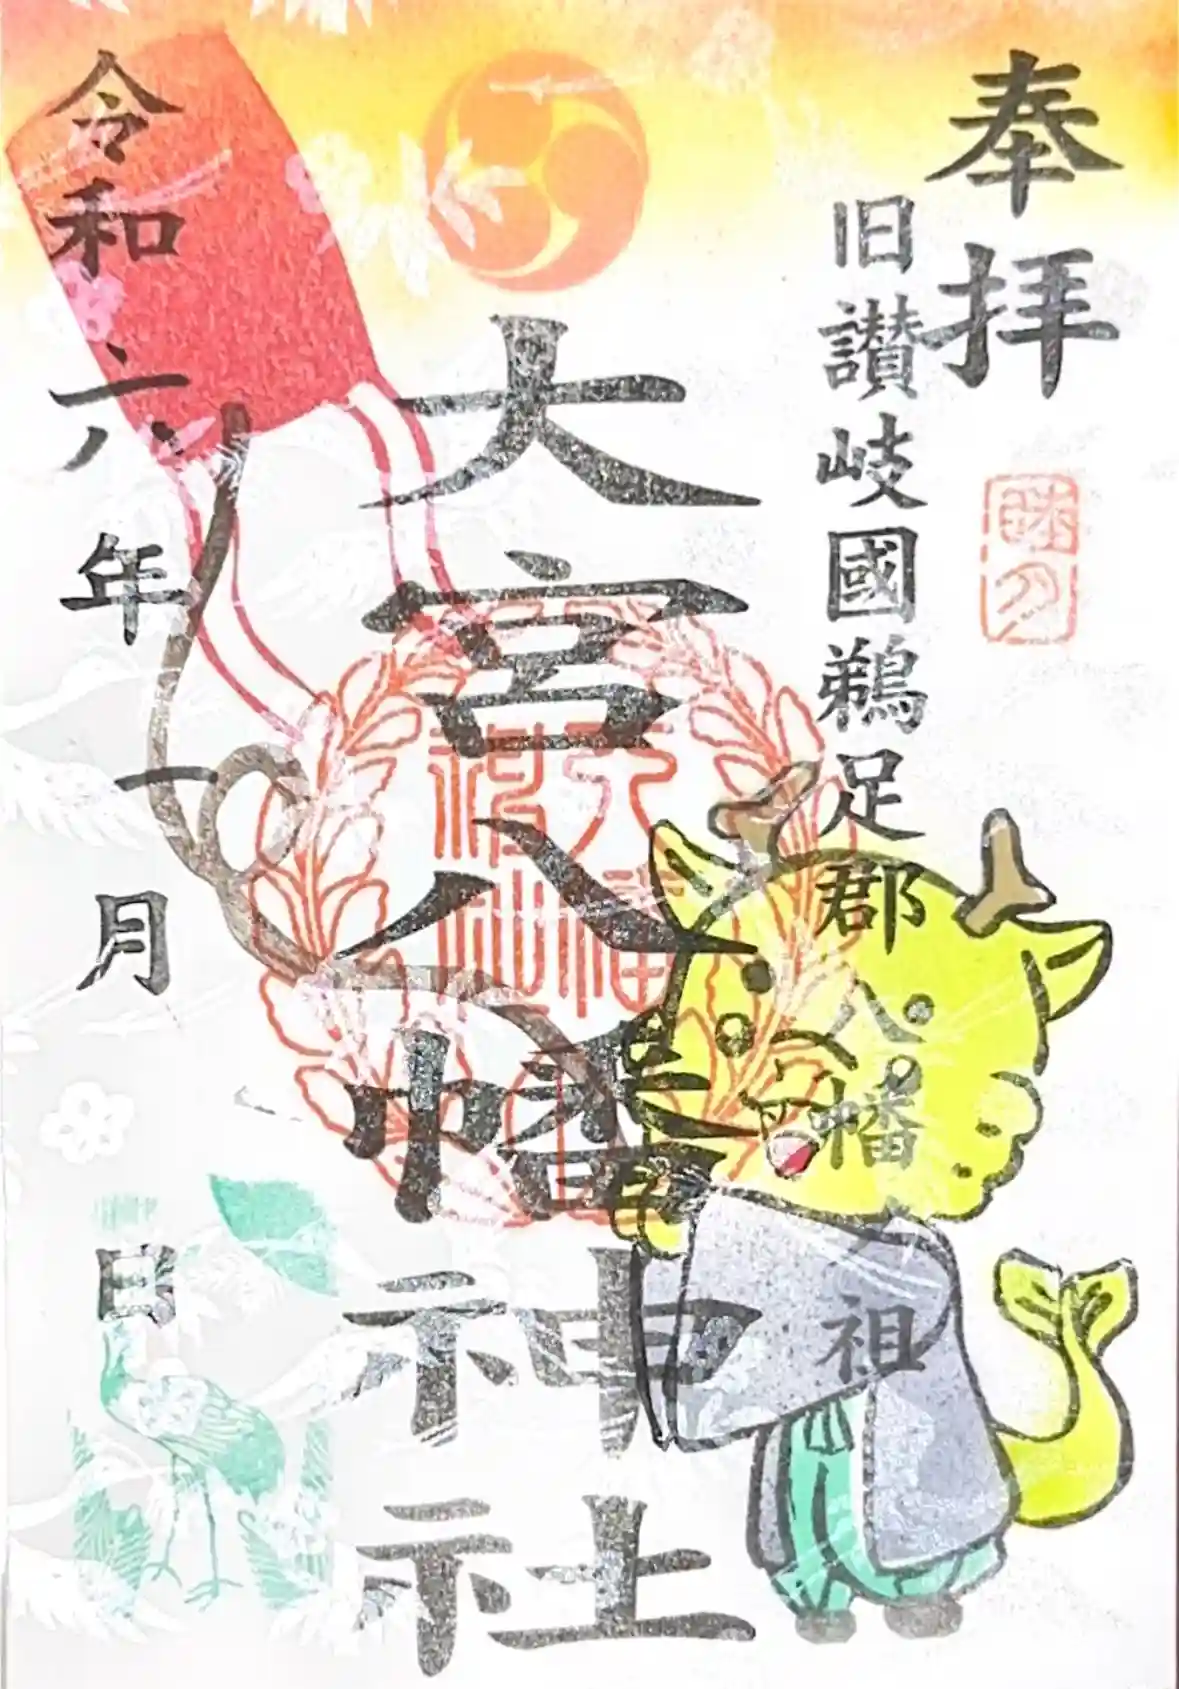 奉拝
旧讃岐國鵜足郡八幡祖
大宮八幡神社
令和六年一月 日